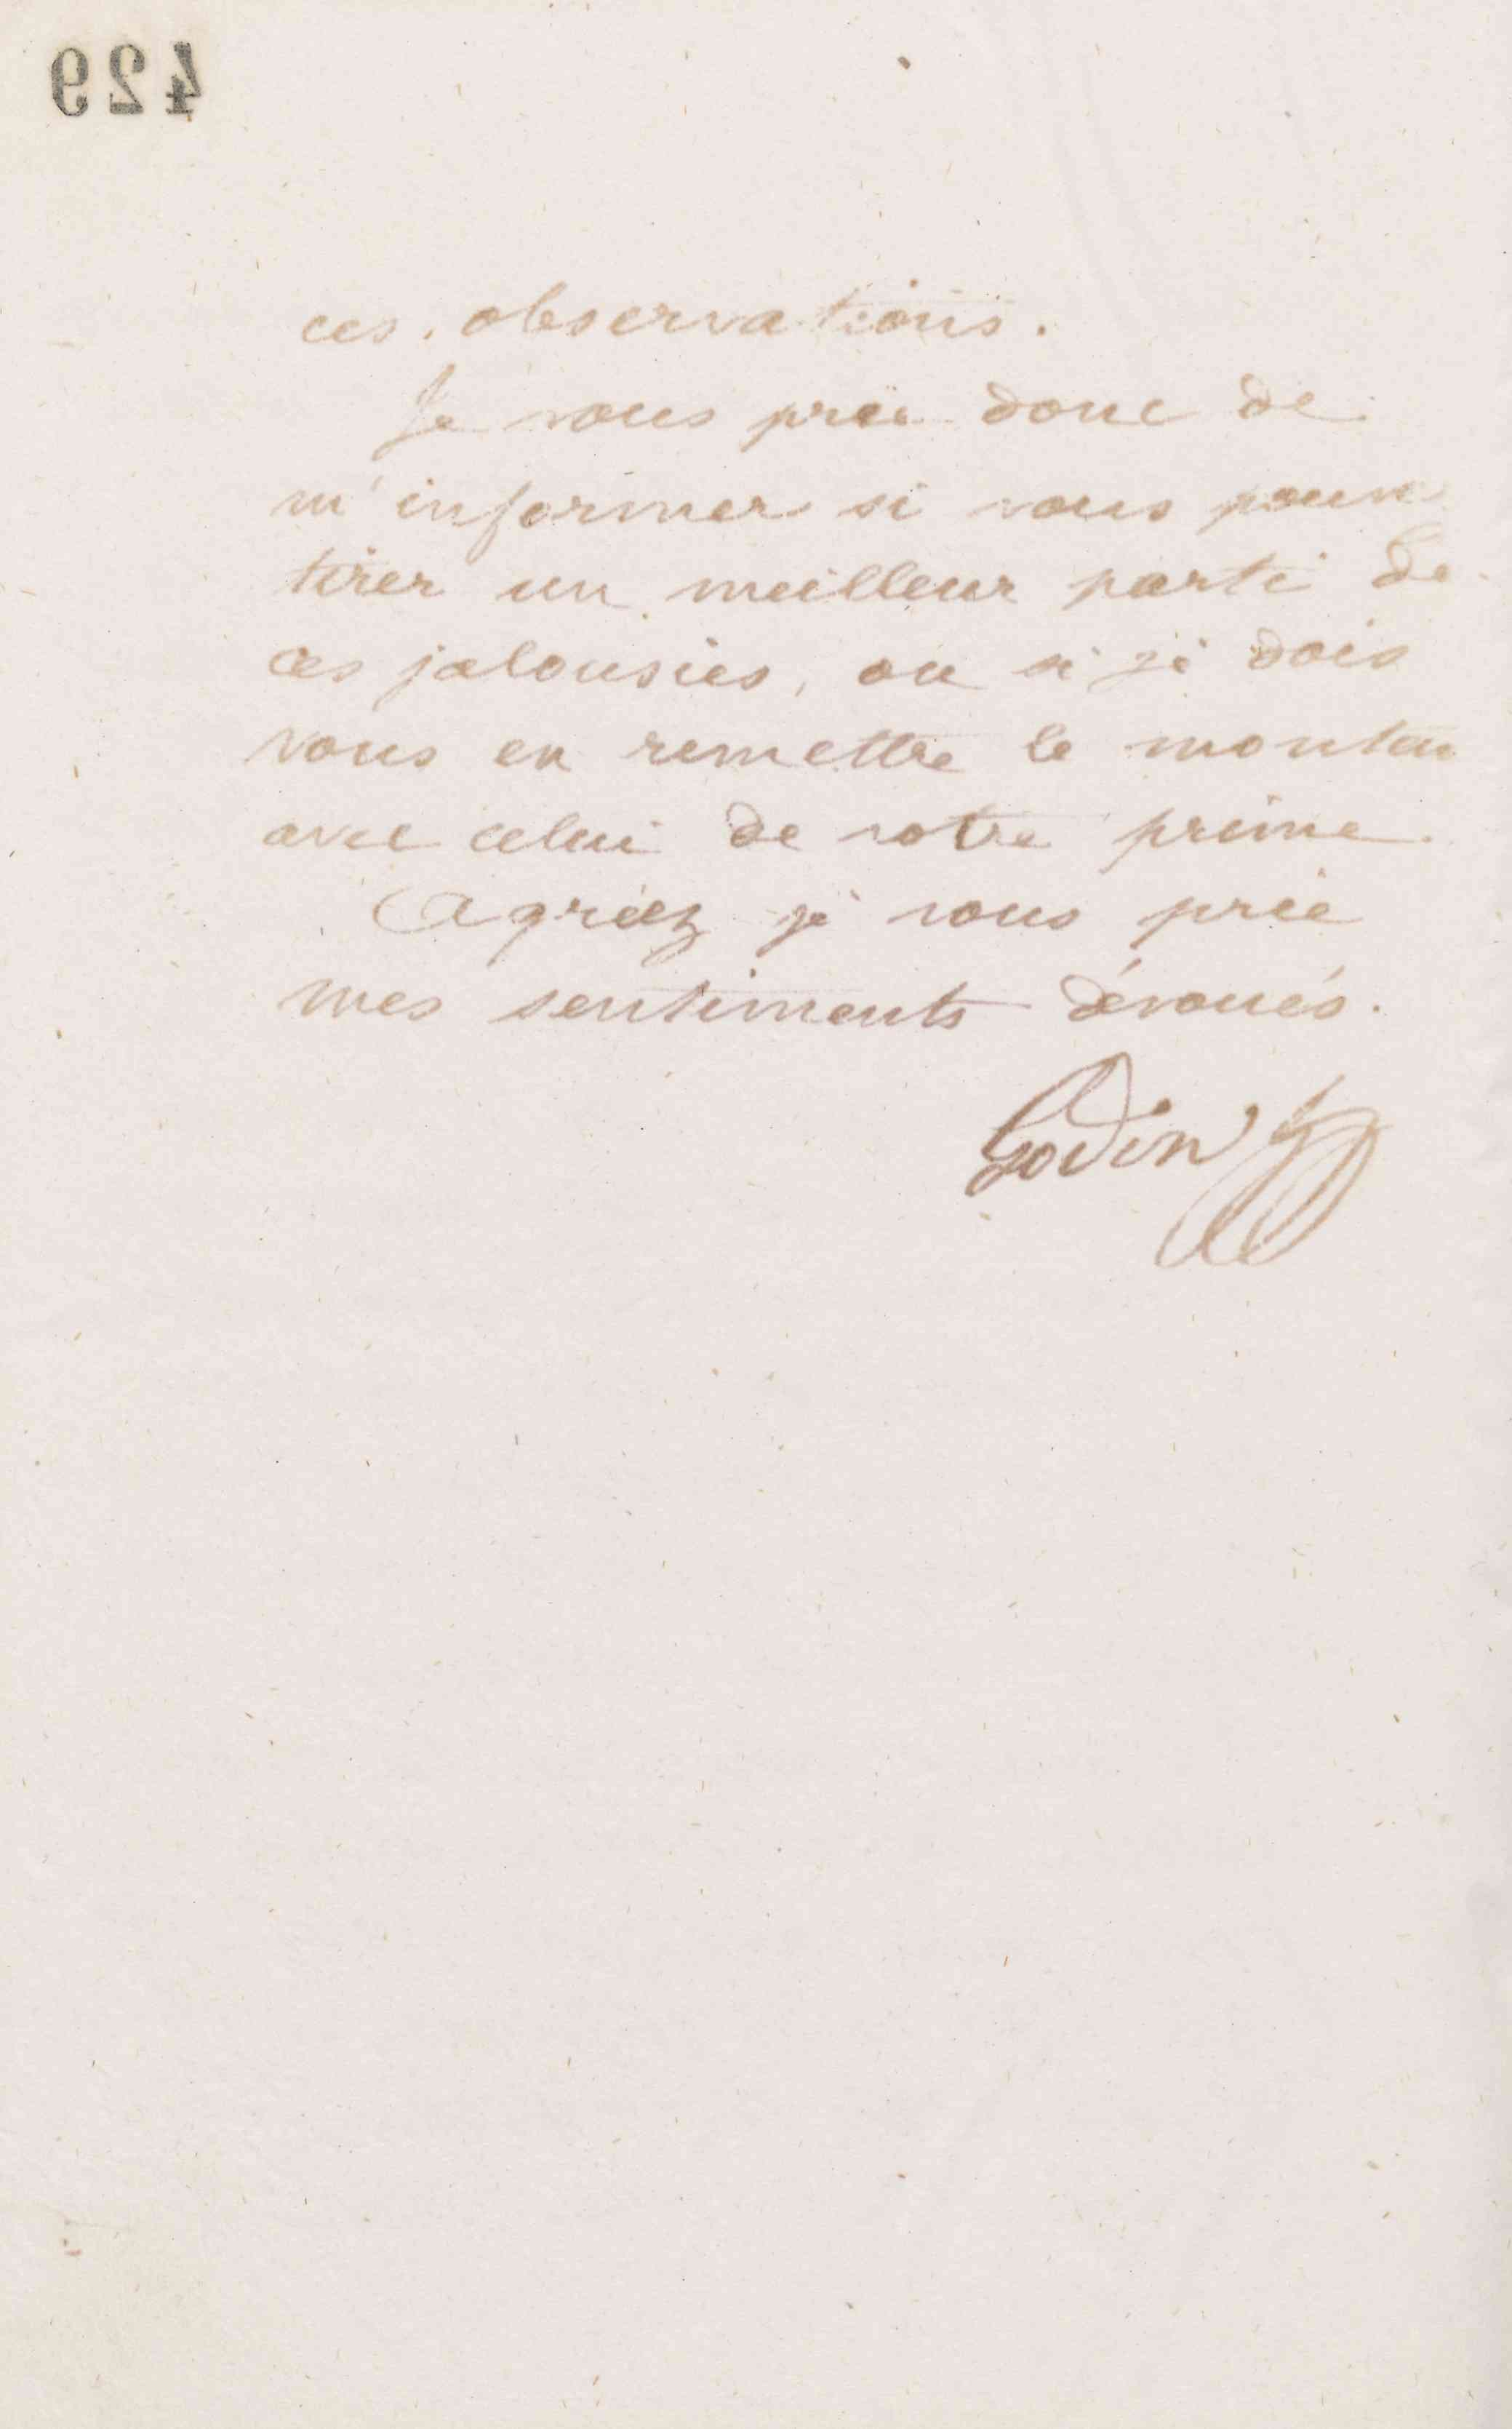 429
ces observations.
Je vous prie donc de
m'informer si vous pouve
tirer un meilleur parti de
ces jalousies, ou si je dois
vous en remettre le montan
avec celui de votre prime.
Agréez je vous prie
mes sentiments dévoués.
Godin